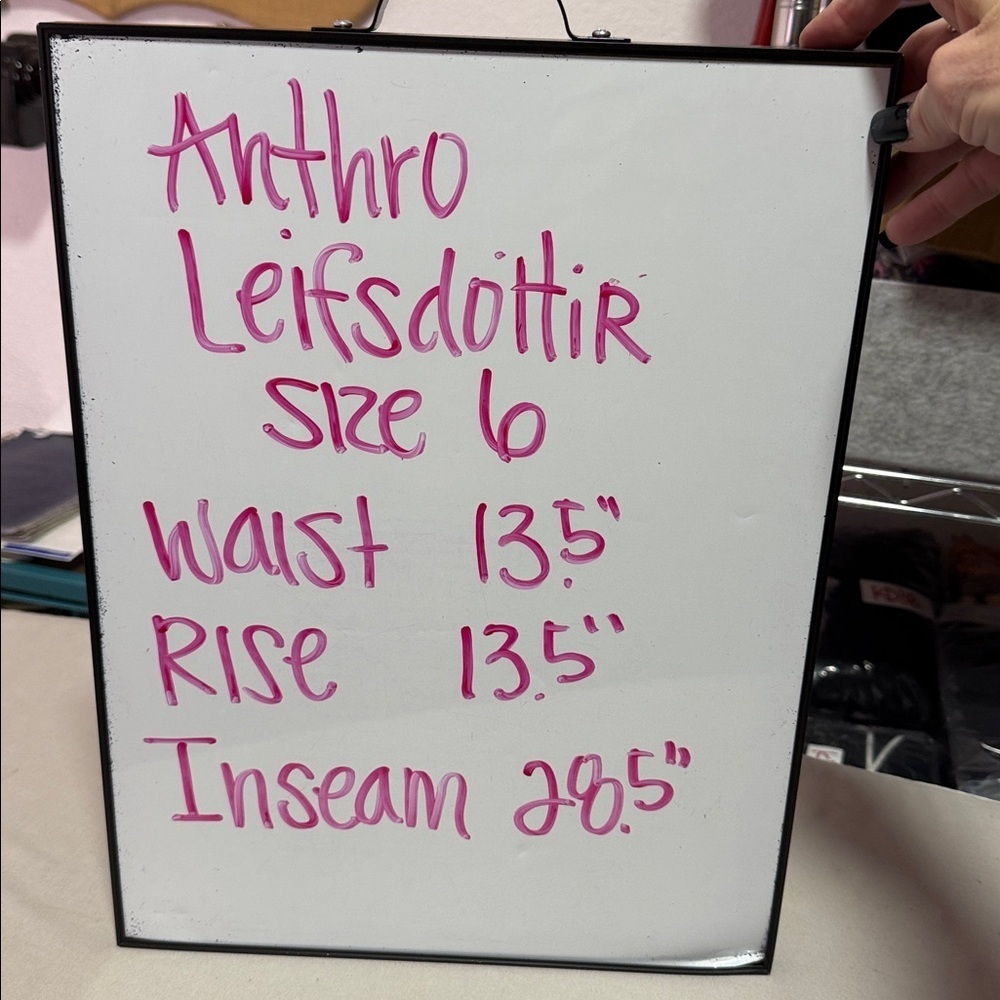 Anthro
Leifsdottir
Size 6
Waist 13.5"
Rise 13.5"
Inseam 28.5"